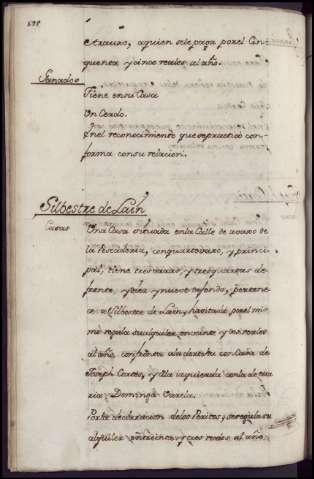 etrauro, aquien sele paga porel Cin-
quenta y cinco reales al año.
Ganados
Tiene en su Casa
Un Cerdo.
En el reconocimiento que se practicó con-
forma con su relacion.
Silbestre de Lain
Casas
Una Casa situada en la Calle de avaxo de
la Pescaderia, con quarto vaxo, y princi-
pal, tiene tres varas, y tres quartas de
frente, y diez y nueve de fondo, pertene-
ce a Silbestre de Lain, y havitada por el mis-
mo regula su alquiler en veinte y dos reales
al año, confronta ala derecha con Casa de
Joseph Cortés, y ala izquierda con la de Ma-
ria Dominga Garcia.
Por la declaracion de los Peritos, se regula su
alquiler en treinta y tres reales al año.